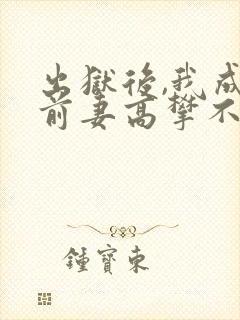 出獄後,我成
前妻高攀不
鍾寶東